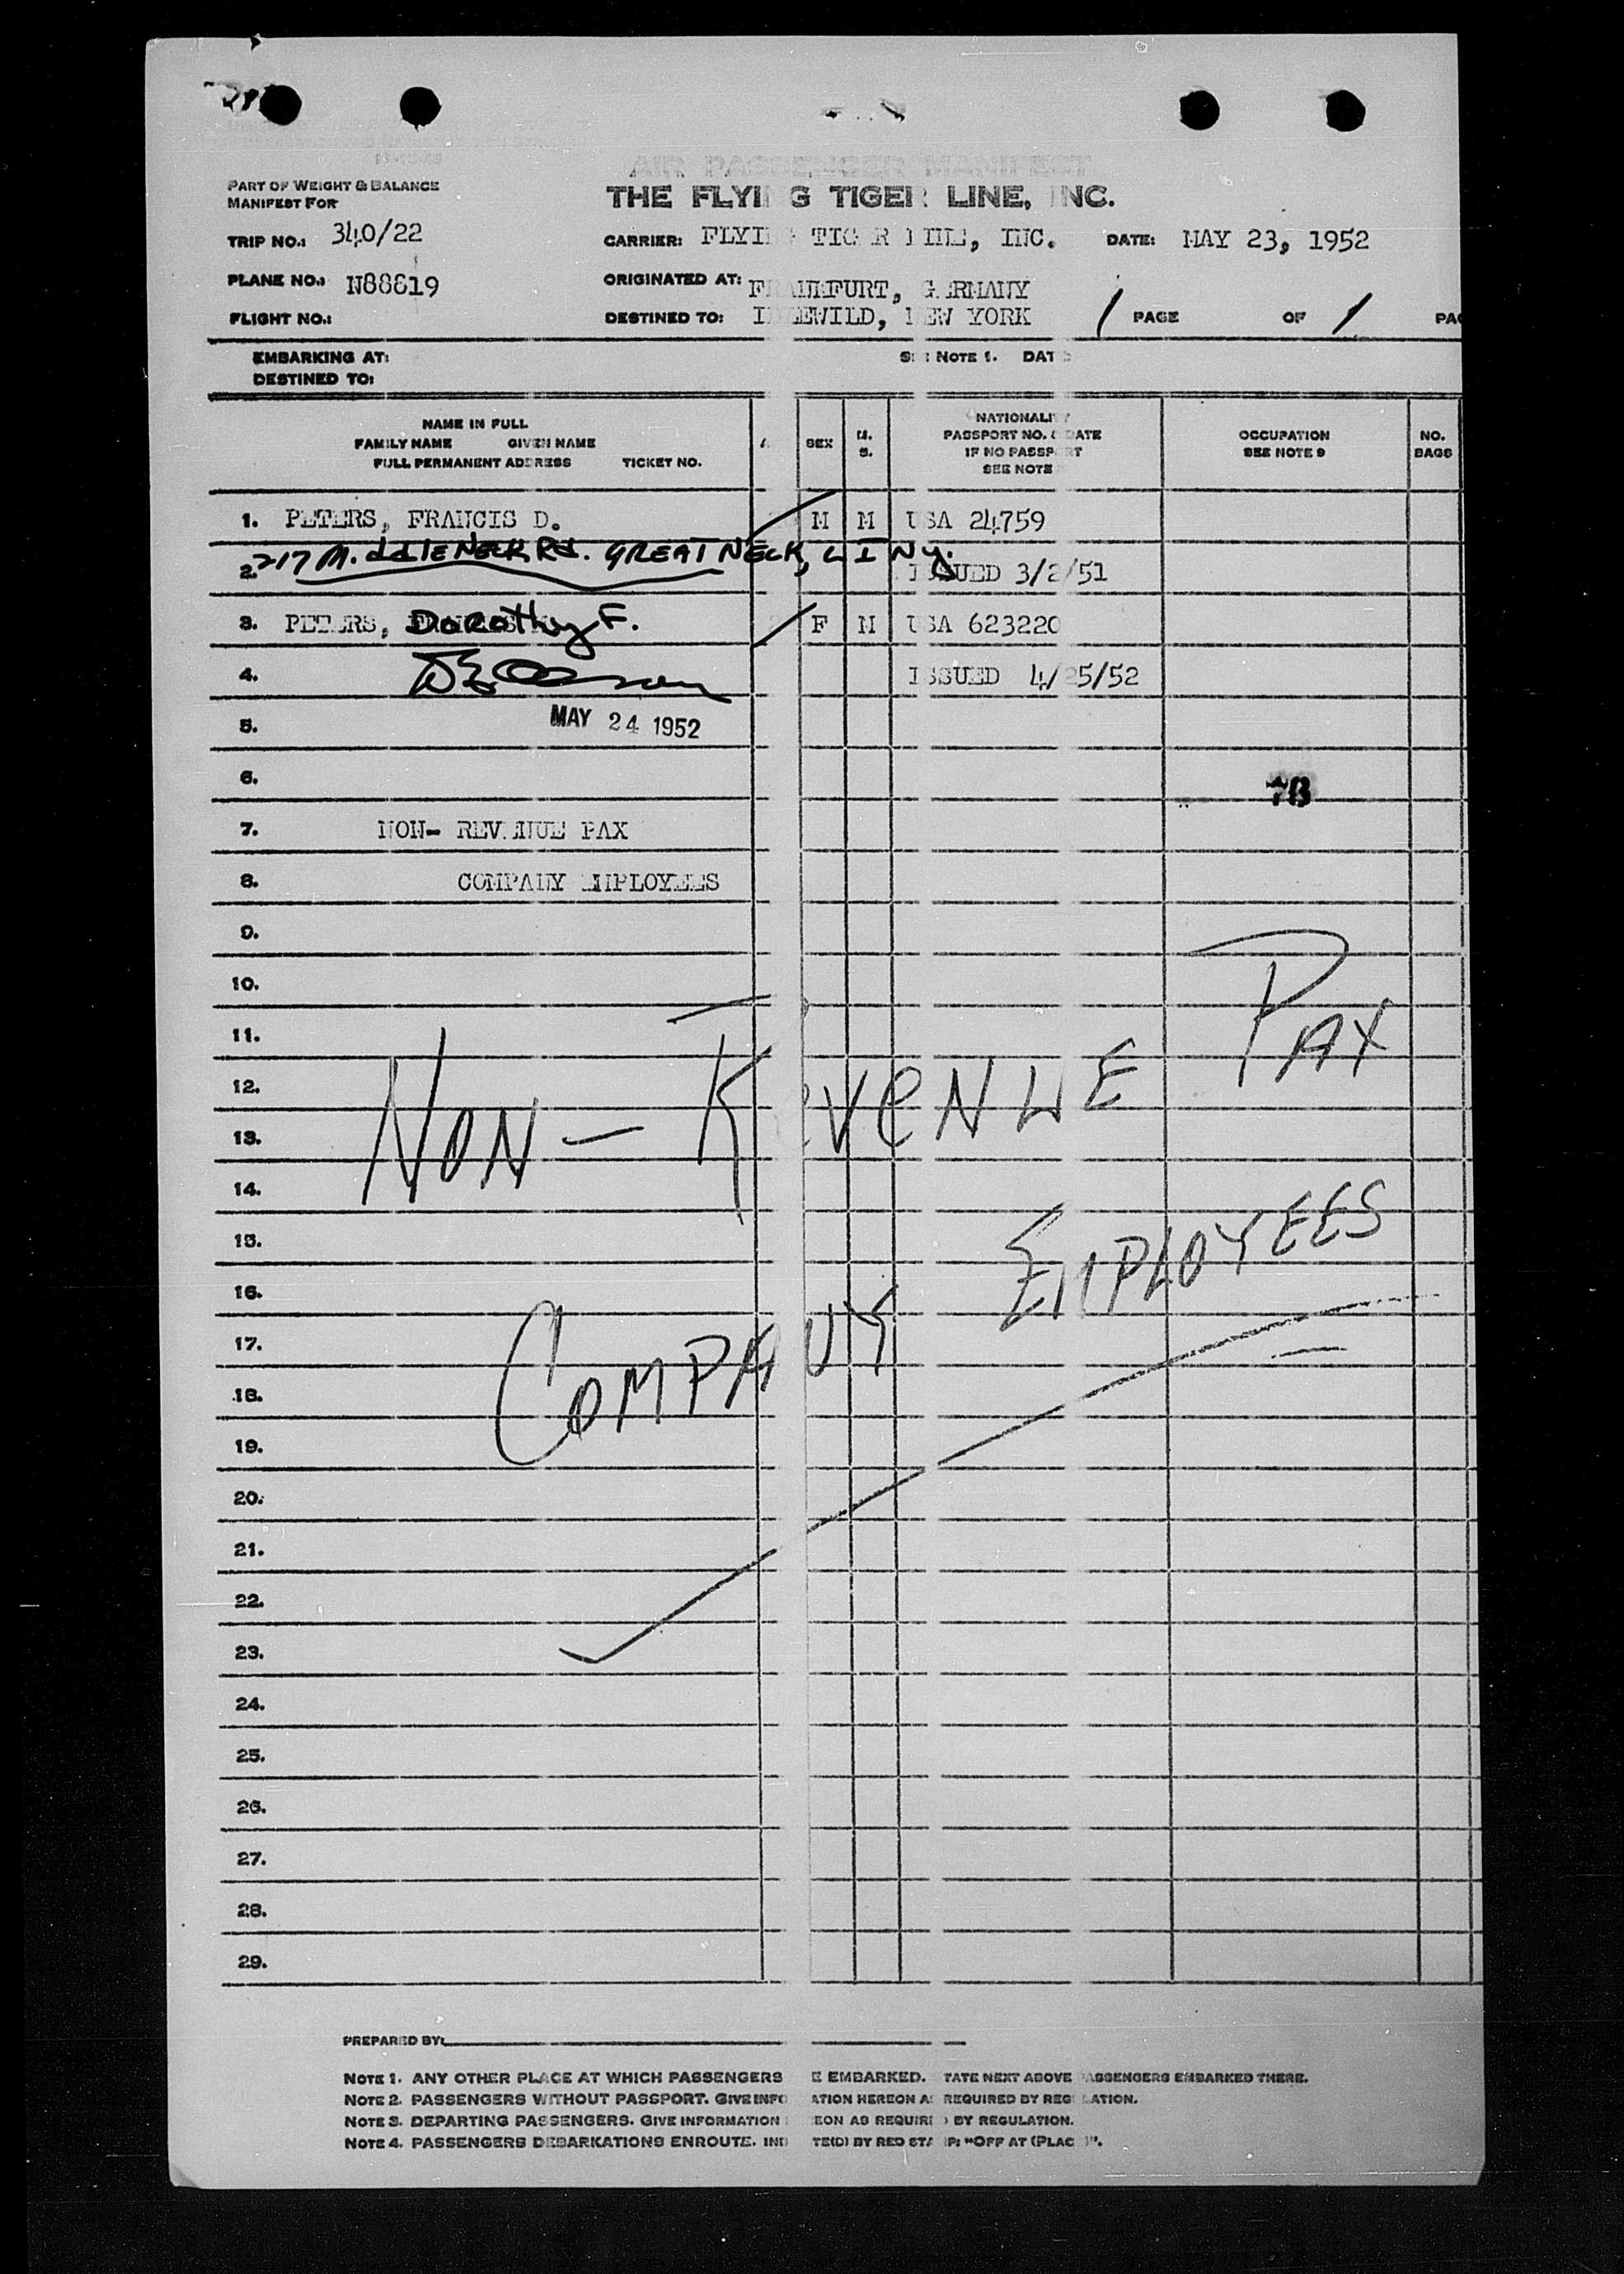 AIR PASSENGER MANIFEST
PART OF WEIGHT & BALANCE
MANIFEST FOR
THE FLYI G TIGER LINE, NC.
TRIP NO.: 340/22
CARRIER: FLYI G TIG R LINE, INC. DATE: MAY 23, 1952
PLANE NO.: N88819
ORIGINATED AT: FRANKFURT, GERMANY
FLIGHT NO.:
DESTINED TO: IDLEWILD, NEW YORK 1 PAGE OF 1 PA
EMBARKING AT: SEE NOTE 1. DATE
DESTINED TO:
NAME IN FULL
FAMILY NAME GIVEN NAME
FULL PERMANENT ADDRESS TICKET NO.
A SEX M. S.
NATIONALITY
PASSPORT NO. & DATE
IF NO PASSPORT
SEE NOTE
OCCUPATION
SEE NOTE 9
NO.
BAGS
1. PETERS, FRANCIS D. M M USA 24759
2. 217 MIDDLE NECK RD. GREAT NECK, L I NY. ISSUED 3/2/51
3. PETERS, Dorothy F. F M USA 623220
4. ISSUED 4/25/52
5. MAY 24 1952
6.
7. NON- REVENUE PAX
8. COMPANY EMPLOYEES
9.
10.
11.
12.
NON - REVENUE PAX
13.
14.
15.
16.
COMPANY EMPLOYEES
17.
18.
19.
20.
21.
22.
23.
24.
25.
26.
27.
28.
29.
PREPARED BY:
NOTE 1. ANY OTHER PLACE AT WHICH PASSENGERS E EMBARKED. TATE NEXT ABOVE PASSENGERS EMBARKED THERE.
NOTE 2. PASSENGERS WITHOUT PASSPORT. GIVE INFO ATION HEREON AS REQUIRED BY REGULATION.
NOTE 3. DEPARTING PASSENGERS. GIVE INFORMATION EON AS REQUIRED BY REGULATION.
NOTE 4. PASSENGERS DEBARKATIONS ENROUTE. IND TE(D) BY RED STA P: "OFF AT (PLACE)".